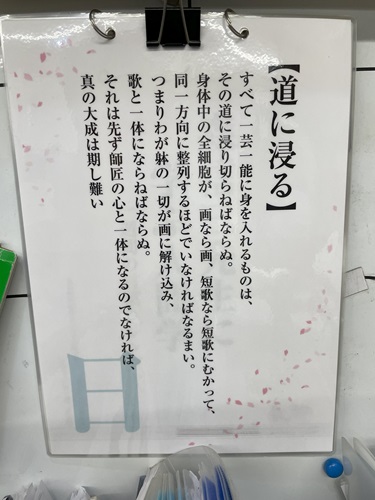 【道に浸る】
すべて一芸一能に身を入れるものは、
その道に浸り切らねばならぬ。
身体中の全細胞が、画なら画、短歌なら短歌にむかって、
同一方向に整列するほどでいなければなるまい。
つまりわが躰の一切が画に解け込み、
歌と一体にならねばならぬ。
それは先ず師匠の心と一体になるのでなければ、
真の大成は期し難い
日